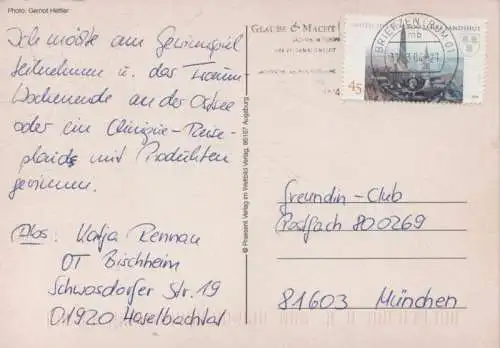 Photo: Gernot Helfier
Ich möchte am Gewinnspiel
teilnehmen u. das Traum-
Wochenende an der Ostsee
oder ein Clinique-Reise-
plaids mit Produkten
gewinnen.
Abs: Katja Rennau
OT Bischheim
Schwosdorfer Str. 19
01920 Haselbachtal
© Praesent Verlag im Weltbild Verlag, 86167 Augsburg
GLAUBE & MACHT
BRIEFZENTRUM 01
mb
45
Freundin-Club
Postfach 800269
81603 München